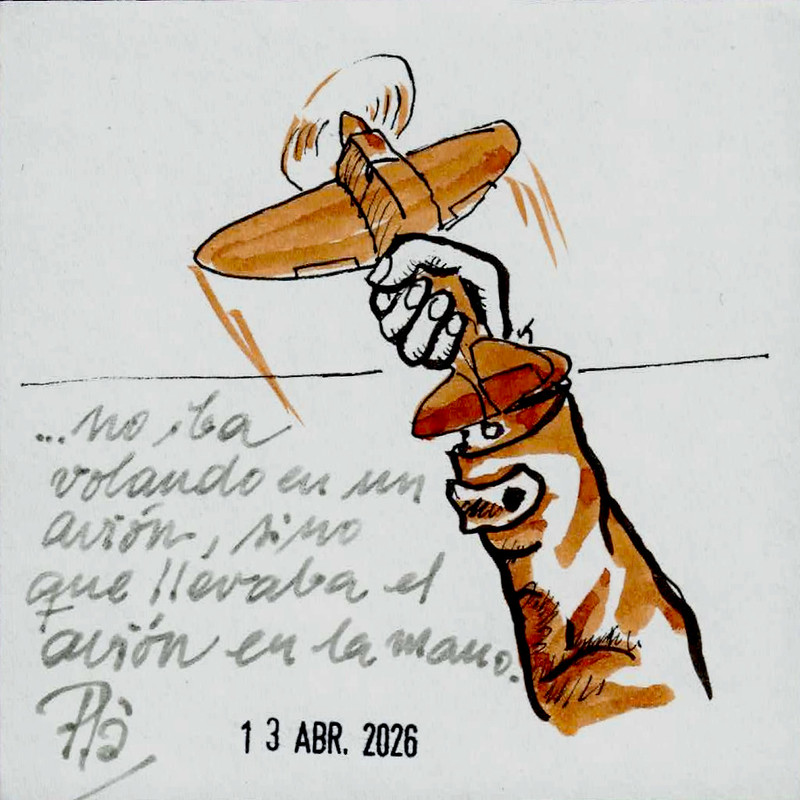 ...no iba
volando en un
avión, sino
que llevaba el
avión en la mano.
Plà
13 ABR. 2026